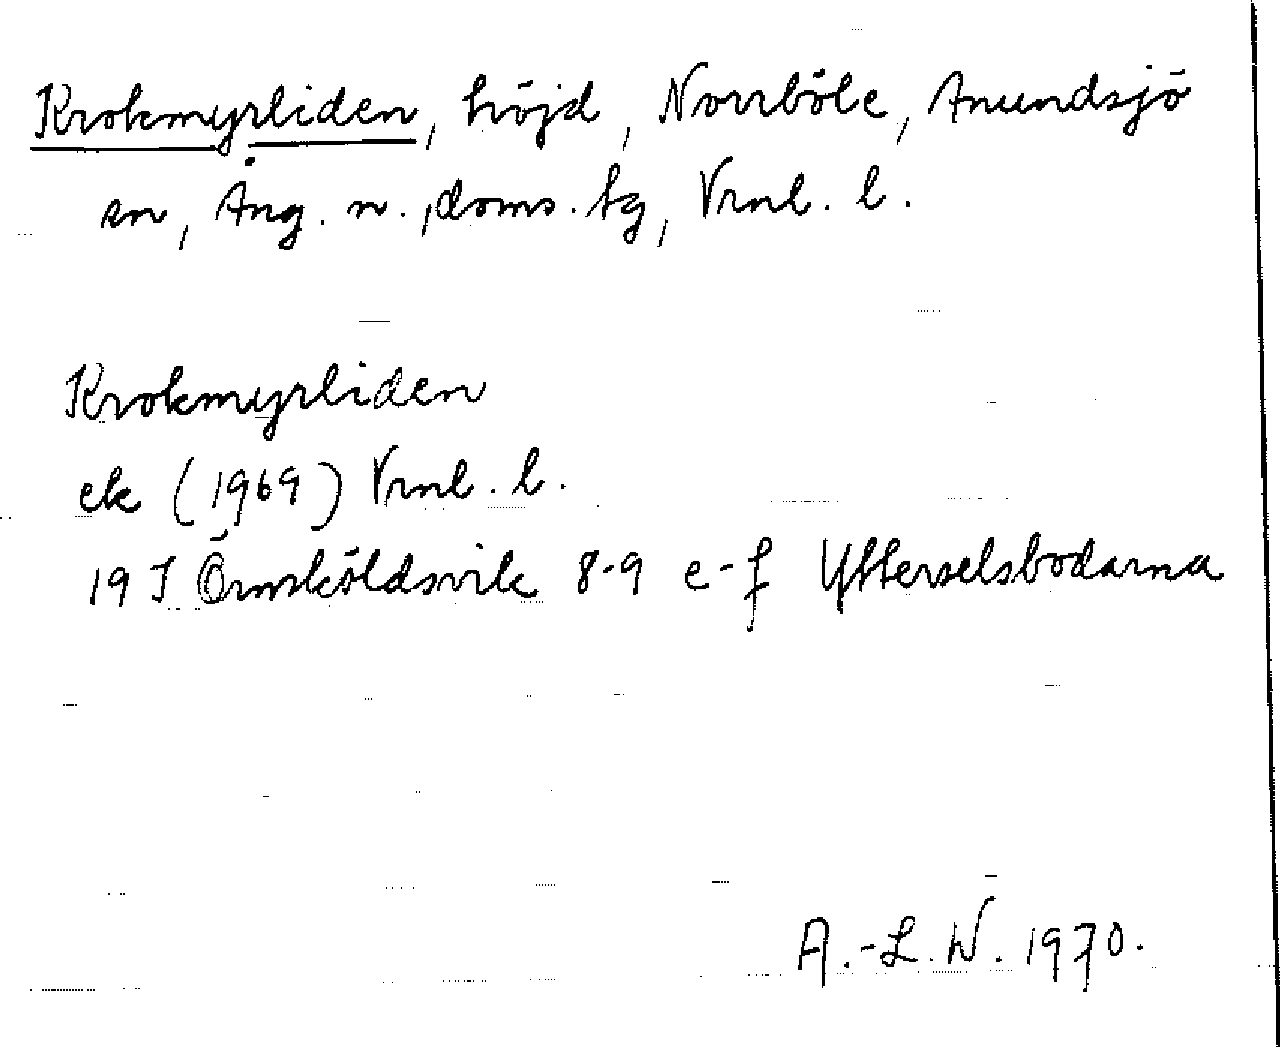 Krokmyrliden, höjd, Norrböle, Anundsjö
sn, Ång. n., doms. tg, Vrnl. l.
Krokmyrliden
ek (1969) Vrnl. l.
19 J Örnsköldsvik 8-9 e-f Ytterselsbodarna
A.-L. W. 1970.